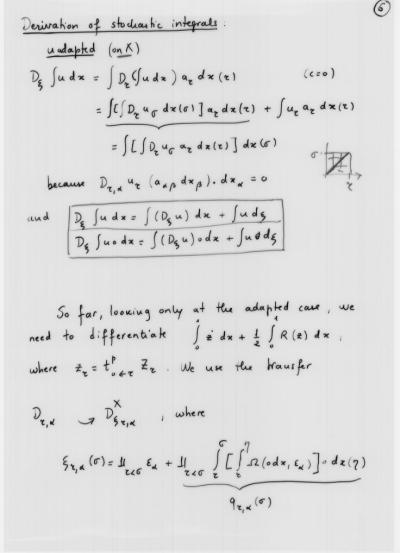 6
Derivation of stochastic integrals :
u adapted (on X)
D_ξ ∫u dx = ∫ D_τ (∫u dx) a_τ dx(τ) (c=0)
= ∫[∫ D_τ u_σ dx(σ)] a_τ dx(τ) + ∫ u_τ a_τ dx(τ)
= ∫[∫ D_τ u_σ a_τ dx(τ)] dx(σ)
σ
τ
because D_{τ,α} u_τ (a_{αβ} dx_β) . dx_α = 0
and D_ξ ∫u dx = ∫(D_ξ u) dx + ∫u dξ
D_ξ ∫u o dx = ∫(D_ξ u) o dx + ∫u o dξ
So far, looking only at the adapted case, we
need to differentiate ∫_0^1 ż dx + 1/2 ∫_0^1 R(z) dx ,
where z_τ = t^P_{o←τ} Z_τ . We use the transfer
D_{τ,α} → D^X_{ξ_{τ,α}} , where
ξ_{τ,α}(σ) = 1_{τ<σ} ε_α + 1_{τ<σ} ∫_τ^σ [∫_τ^η Ω(o dx, ε_α)] o dx(η)
q_{τ,α}(σ)